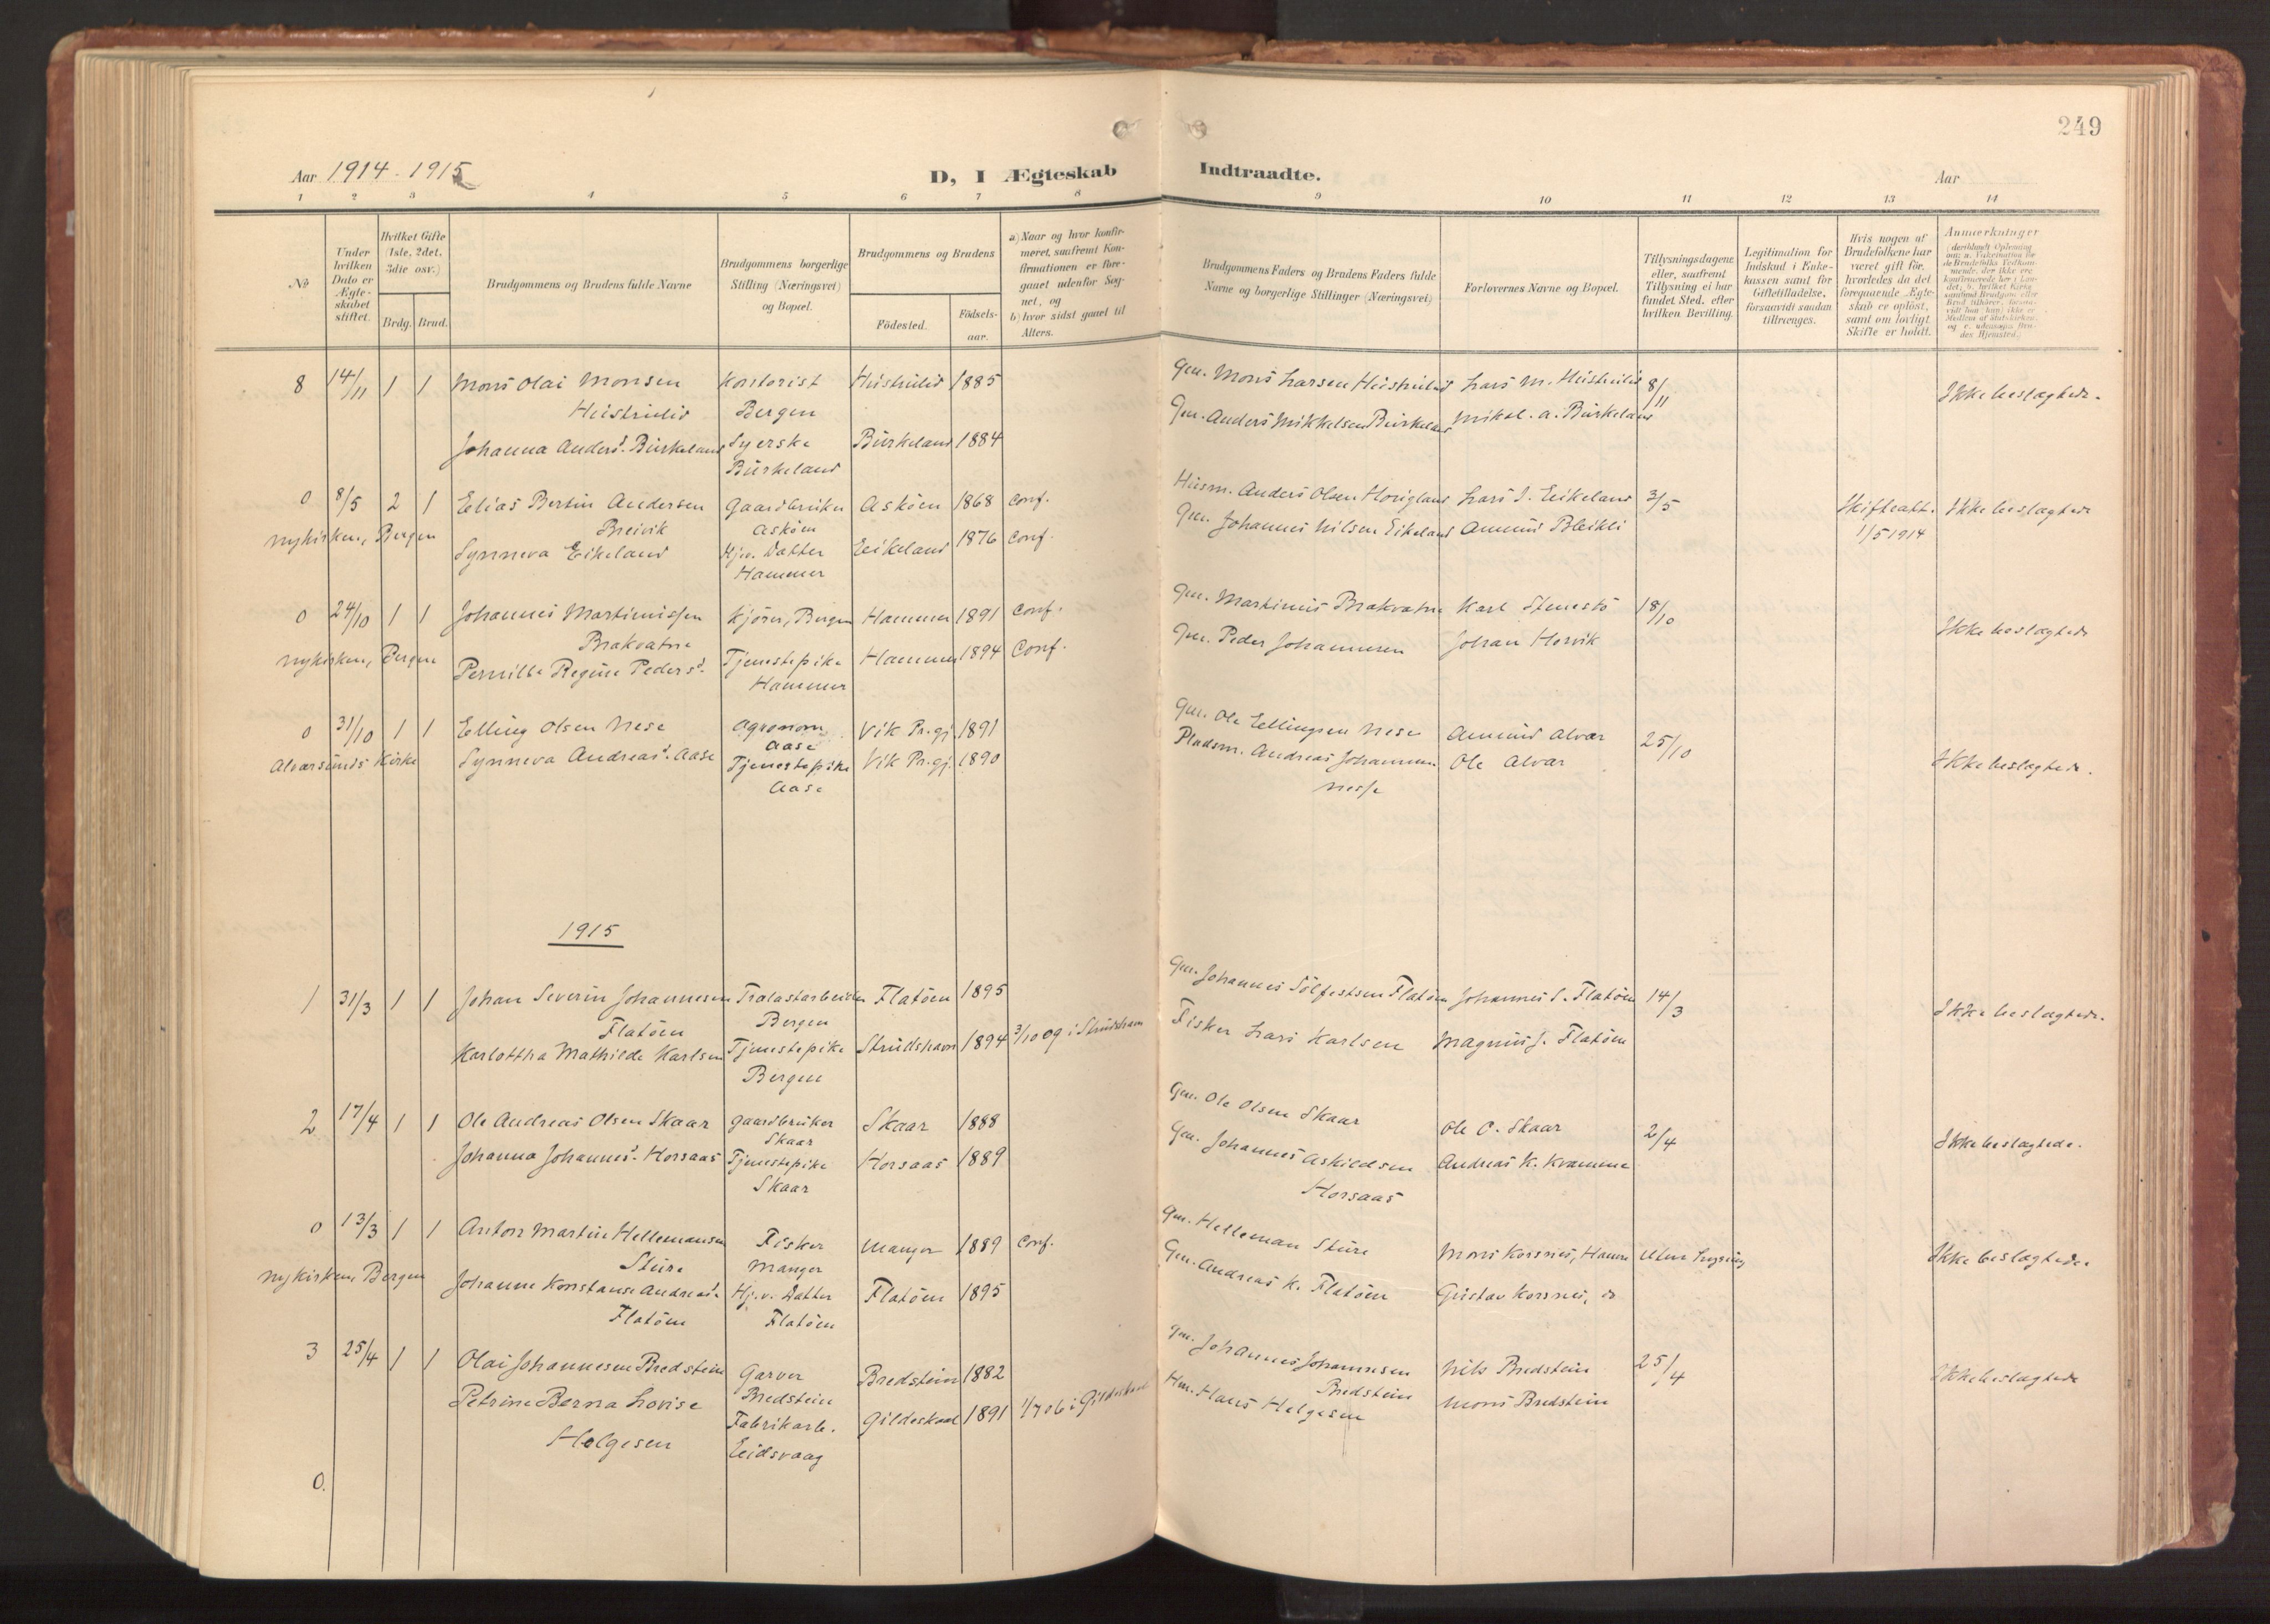 249
Aar 1914-1915
D, I Ægteskab Indtraadte.
Aar
1 2 3 4 5 6 7 8 9 10 11 12 13 14
No
Under hvilken Dato er Ægteskabet stiftet.
Hvilket Gifte (1ste, 2det, 3die osv.)
Brdg. Brud.
Brudgommens og Brudens fulde Navne
Brudgommens borgerlige Stilling (Næringsvei) og Bopæl.
Brudgommens og Brudens
Födested.
Födselsaar.
a) Naar og hvor konfirmeret, saafremt Konfirmationen er foregaaet udenfor Sognet, og
b) hvor sidst gaaet til Alters.
Brudgommens Faders og Brudens Faders fulde Navne og borgerlige Stillinger (Næringsvei)
Forlovernes Navne og Bopæl.
Tillysningsdagene eller, saafremt Tillysning ei har fundet Sted, efter hvilken Bevilling.
Legitimation for Indskud i Enkekassen samt for Giftetilladelse, forsaavidt saadan tiltrænges.
Hvis nogen af Brudefolkene har været gift för, hvorledes da det foregaaende Ægteskab er oplöst, samt om lovligt Skifte er holdt.
Anmærkninger
8 14/11 1 1 Mons Olai Monsen Kontorist 1885 Gm. Mons Larsen 8/11 Ikke beslægtede.
Bergen
Gm. Anders Mikkelsen Birkeland Mikal. A. Birkeland
Johanna Anders d. Birkeland Syerske Birkeland 1884
Birkeland
0 8/5 2 1 Elias Bertin Andersen Gaardbruker Askøen 1868 conf. Husm. Anders Olsen Lars J. Eikeland 3/5 Skifteatt. Ikke beslægtede
Nykirken, Bergen Breivik Askøen 1/5 1914
Synneva Eikeland Hjv. Datter Eikeland 1876 conf. Gm. Johannes Nilsen Eikeland Bleikli
Hammer
0 24/10 1 1 Johannes Martinussen Kjører, Bergen Hammer 1891 conf. Gm. Martinus Brakvatne Karl Stenestø 18/10 Ikke beslægtede
Nykirken, Bergen Brakvatne
Pernille Regine Peders d. Tjenestepike Hammer 1894 Conf. Gm. Peder Johannesen Johan Hervik
Hammer
0 31/10 1 1 Elling Olsen Nese Agronom Vik Pr.gj. 1891 Gm. Ole Ellingsen Nese Alvær 25/10 Ikke beslægtede.
Aase
Alversunds Kirke Synneva Andreas d. Aase Tjenestepike Vik Pr.gj. 1890 Pladsm. Andreas Johannesen Ole Alvær
Aase Nesse
1915
1 31/3 1 1 Johan Severin Johannesen Trælastarbeider Flatøen 1895 Gm. Johannes Sølfestsen Flatøen Johannes S. Flatøen 14/3 Ikke beslægtede.
Flatøen Bergen
Karlottha Mathilde Karlsen Tjenestepike Strudshavn 1894 3/10 09 i Strudshavn Fisker Lars Karlsen Magnus J. Flatøen
Bergen
2 17/4 1 1 Ole Andreas Olsen Skaar Gaardbruker Skaar 1888 Gm. Ole Olsen Skaar Ole O. Skaar 2/4 Ikke beslægtede.
Skaar
Johanna Johannes d. Horsaas Tjenestepike Horsaas 1889 Gm. Johannes Askildsen Andreas K. Kramme
Skaar Horsaas
0 13/3 1 1 Anton Martin Hellemansen Fisker Manger 1889 conf. Gm. Helleman Sture Mons Korsnes, Hamre Uten lysning Ikke beslægtede
Sture Manger
Nykirken, Bergen Johanne Konstanse Andreas d. Hj.v. Datter Flatøen 1895 Gm. Andreas K. Flatøen Gustav Korsnes, do
Flatøen Flatøen
3 25/4 1 1 Olai Johannesen Bredstein Garver Bredstein 1882 Gm. Johannes Johannesen Nils Bredstein 25/4 Ikke beslægtede
Bredstein Bredstein
Petrine Berna Lovise Fabrikarb. Gildeskaal 1891 1/7 06 i Gildeskaal Hm. Hans Helgesen Mons Bredstein
Helgesen Eidsvaag
0.